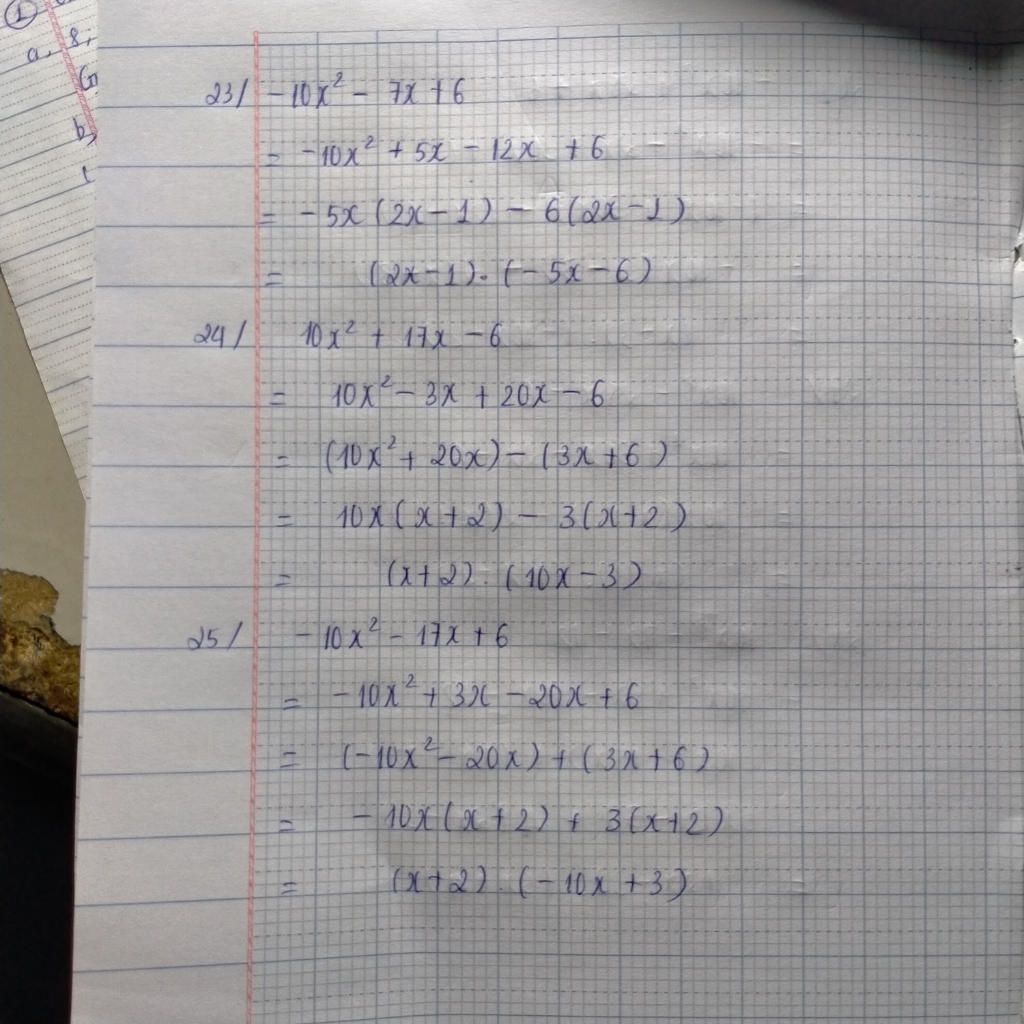 ①
a, 8,
G
b,
23/ -10x² - 7x + 6
= -10x² + 5x - 12x + 6
= -5x (2x - 1) - 6 (2x - 1)
= (2x - 1) . (-5x - 6)
24/ 10x² + 17x - 6
= 10x² - 3x + 20x - 6
= (10x² + 20x) - (3x + 6)
= 10x (x + 2) - 3 (x + 2)
= (x + 2) . (10x - 3)
25/ -10x² - 17x + 6
= -10x² + 3x - 20x + 6
= (-10x² - 20x) + (3x + 6)
= -10x (x + 2) + 3 (x + 2)
= (x + 2) . (-10x + 3)